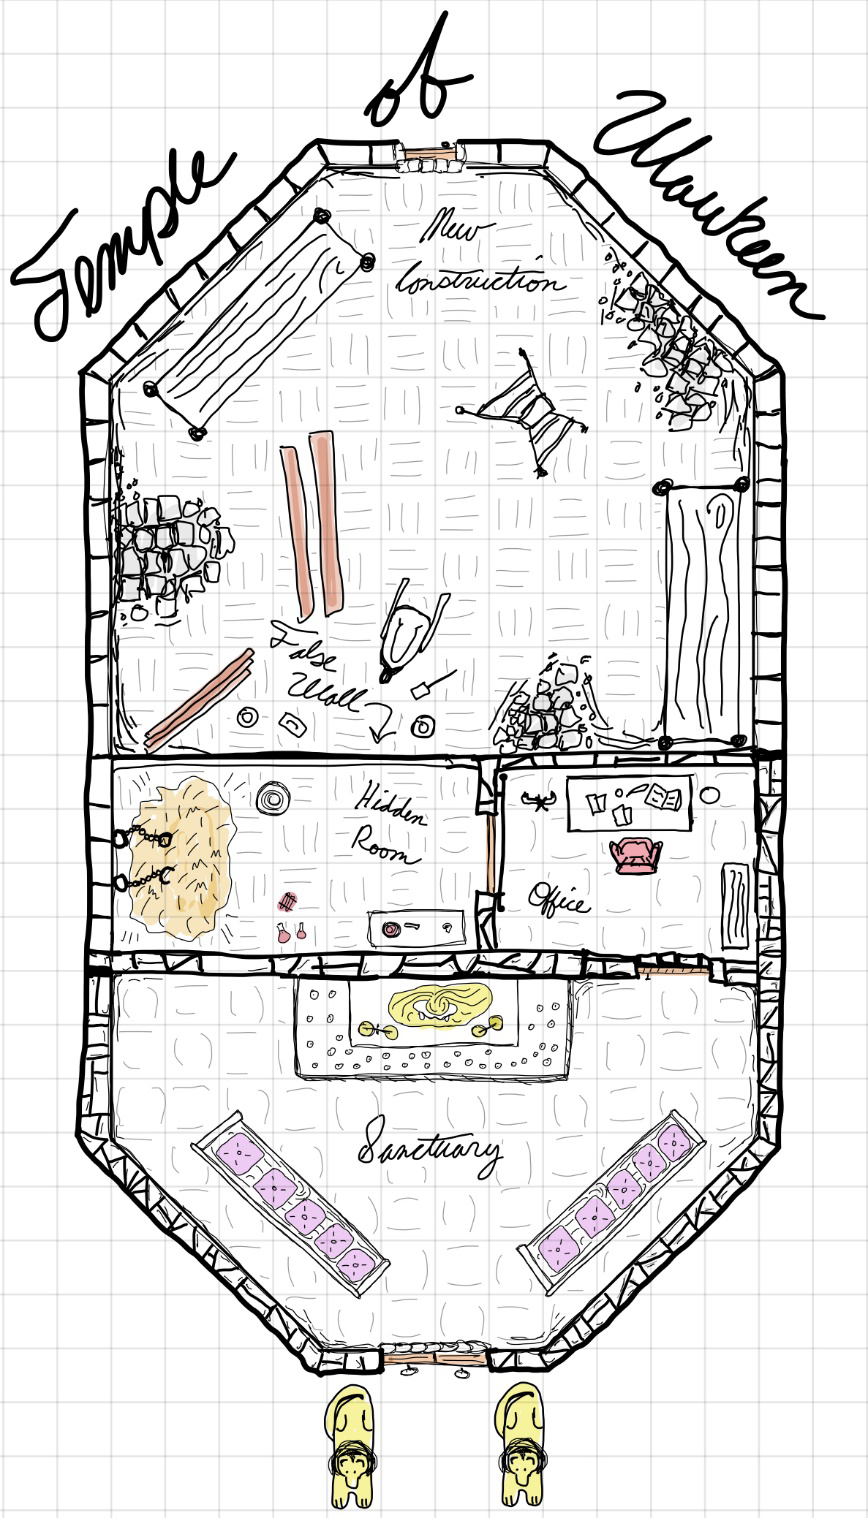 Temple of Waukeen
New
Construction
False
Wall
Hidden
Room
Office
Sanctuary